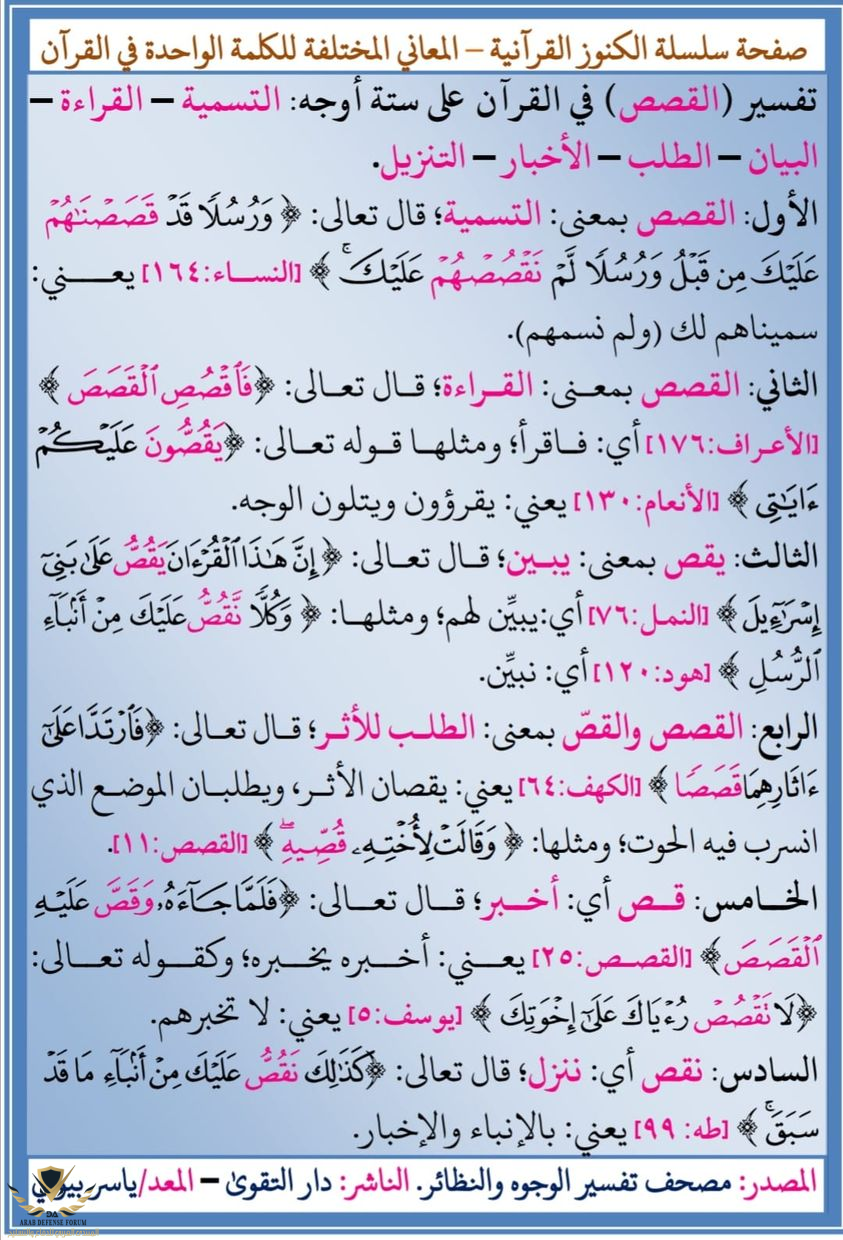 صفحة سلسلة الكنوز القرآنية – المعاني المختلفة للكلمة الواحدة في القرآن
تفسير (القصص) في القرآن على ستة أوجه: التسمية – القراءة –
البيان – الطلب – الأخبار – التنزيل.
الأول: القصص بمعنى: التسمية؛ قال تعالى: ﴿ وَرُسُلًا قَدْ قَصَصْنَٰهُمْ
عَلَيْكَ مِن قَبْلُ وَرُسُلًا لَّمْ نَقْصُصْهُمْ عَلَيْكَ ۚ ﴾ [النساء:١٦٤] يعني:
سميناهم لك (ولم نسمهم).
الثاني: القصص بمعنى: القراءة؛ قال تعالى: ﴿فَٱقْصُصِ ٱلْقَصَصَ ﴾
[الأعراف:١٧٦] أي: فاقرأ؛ ومثلها قوله تعالى: ﴿يَقُصُّونَ عَلَيْكُمْ
ءَايَٰتِى ﴾ [الأنعام:١٣٠] يعني: يقرؤون ويتلون الوجه.
الثالث: يقص بمعنى: يبين؛ قال تعالى: ﴿ إِنَّ هَٰذَا ٱلْقُرْءَانَ يَقُصُّ عَلَىٰ بَنِىٓ
إِسْرَٰٓءِيلَ ﴾ [النمل:٧٦] أي:يبيِّن لهم؛ ومثلها: ﴿ وَكُلًّا نَّقُصُّ عَلَيْكَ مِنْ أَنۢبَآءِ
ٱلرُّسُلِ ﴾ [هود:١٢٠] أي: نبيِّن.
الرابع: القصص والقصّ بمعنى: الطلب للأثر؛ قال تعالى: ﴿فَٱرْتَدَّا عَلَىٰٓ
ءَاثَارِهِمَا قَصَصًا ﴾ [الكهف:٦٤] يعني: يقصان الأثر، ويطلبان الموضع الذي
انسرب فيه الحوت؛ ومثلها: ﴿ وَقَالَتْ لِأُخْتِهِۦ قُصِّيهِ ۖ ﴾ [القصص:١١].
الخامس: قص أي: أخبر؛ قال تعالى: ﴿فَلَمَّا جَآءَهُۥ وَقَصَّ عَلَيْهِ
ٱلْقَصَصَ﴾ [القصص:٢٥] يعني: أخبره يخبره؛ وكقوله تعالى:
﴿لَا نَقْصُصْ رُءْيَاكَ عَلَىٰٓ إِخْوَتِكَ ﴾ [يوسف:٥] يعني: لا تخبرهم.
السادس: نقص أي: ننزل؛ قال تعالى: ﴿كَذَٰلِكَ نَقُصُّ عَلَيْكَ مِنْ أَنۢبَآءِ مَا قَدْ
سَبَقَ ۚ ﴾ [طه: ٩٩] يعني: بالإنباء والإخبار.
المصدر: مصحف تفسير الوجوه والنظائر. الناشر: دار التقوىٰ – المعد/ياسر بيومي
ARAB DEFENSE FORUM